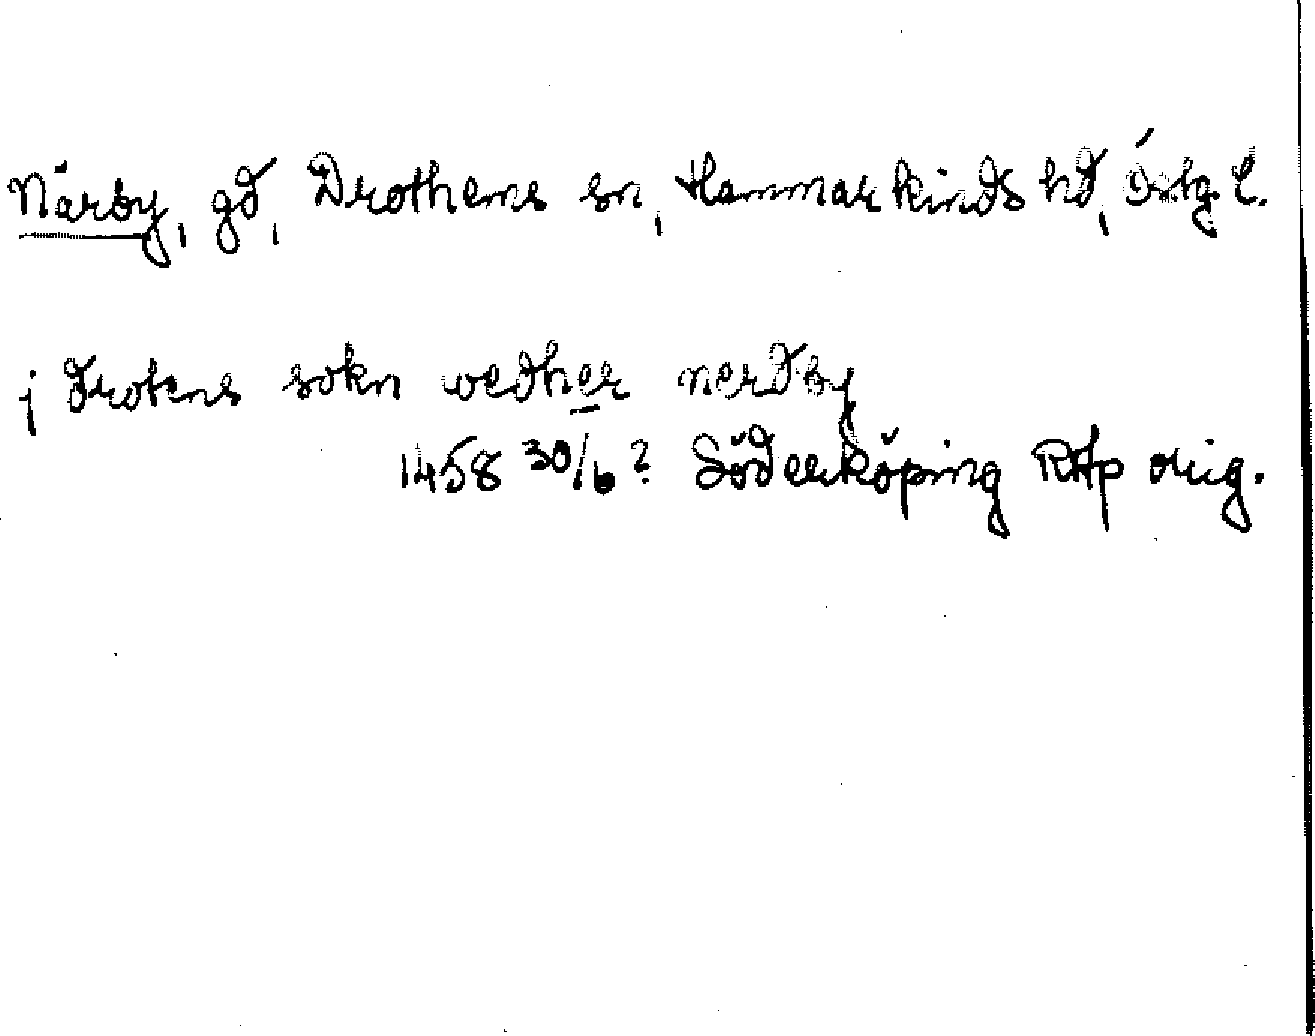 Närby, gd, Drothems sn, Hammarkinds hd, Östg. l.
j drotens sokn wedher nerdby
1458 30/6? Söderköping RAp orig.